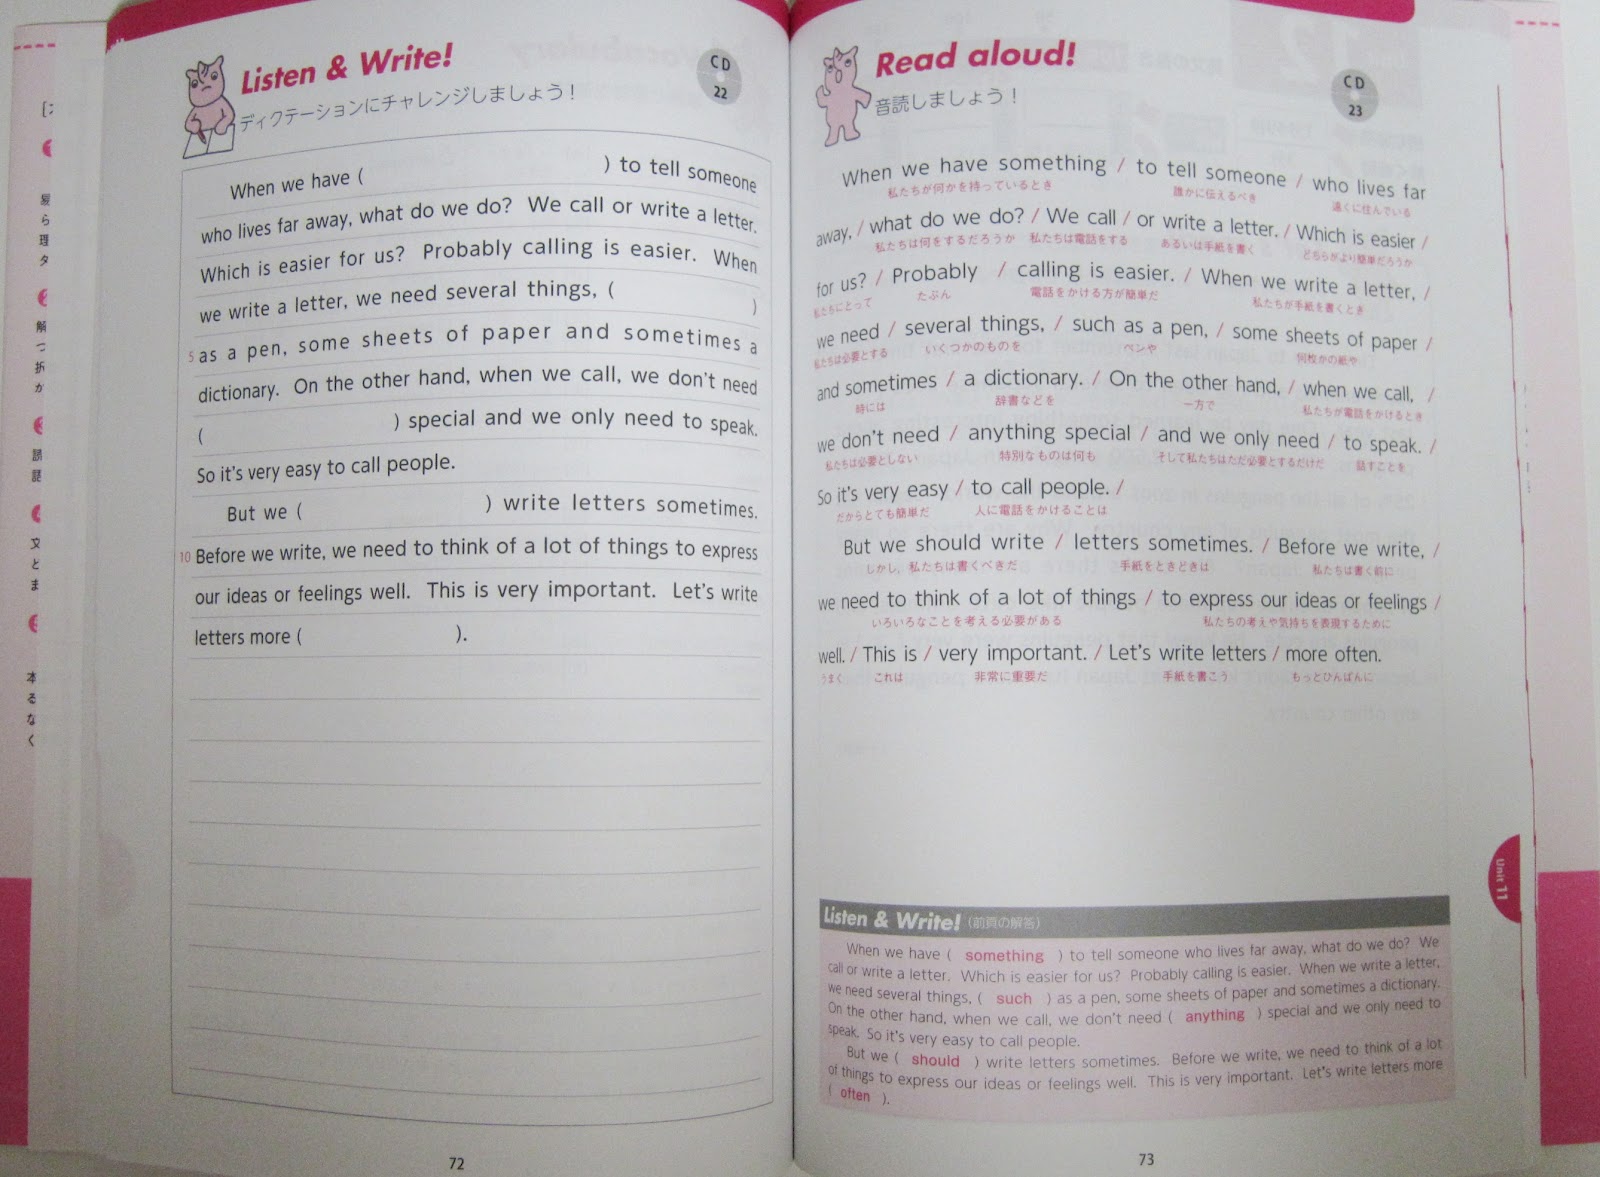 Listen & Write!
ディクテーションにチャレンジしましょう!
CD
22
When we have ( ) to tell someone
who lives far away, what do we do? We call or write a letter.
Which is easier for us? Probably calling is easier. When
we write a letter, we need several things, ( )
5 as a pen, some sheets of paper and sometimes a
dictionary. On the other hand, when we call, we don't need
( ) special and we only need to speak.
So it's very easy to call people.
But we ( ) write letters sometimes.
10 Before we write, we need to think of a lot of things to express
our ideas or feelings well. This is very important. Let's write
letters more ( ).
72
Read aloud!
音読しましょう!
CD
23
When we have something / to tell someone / who lives far
私たちが何かを持っているとき 誰かに伝えるべき 遠くに住んでいる
away, / what do we do? / We call / or write a letter. / Which is easier /
私たちは何をするだろうか 私たちは電話をする あるいは手紙を書く どちらがより簡単だろうか
for us? / Probably / calling is easier. / When we write a letter, /
私たちにとって たぶん 電話をかける方が簡単だ 私たちが手紙を書くとき
we need / several things, / such as a pen, / some sheets of paper /
私たちは必要とする いくつかのものを ペンや 何枚かの紙や
and sometimes / a dictionary. / On the other hand, / when we call, /
時には 辞書などを 一方で 私たちが電話をかけるとき
we don't need / anything special / and we only need / to speak. /
私たちは必要としない 特別なものは何も そして私たちはただ必要とするだけだ 話すことを
So it's very easy / to call people. /
だからとても簡単だ 人に電話をかけることは
But we should write / letters sometimes. / Before we write, /
しかし、私たちは書くべきだ 手紙をときどきは 私たちは書く前に
we need to think of a lot of things / to express our ideas or feelings /
いろいろなことを考える必要がある 私たちの考えや気持ちを表現するために
well. / This is / very important. / Let's write letters / more often.
うまく これは 非常に重要だ 手紙を書こう もっとひんぱんに
Unit 11
Listen & Write! (前頁の解答)
When we have ( something ) to tell someone who lives far away, what do we do? We
call or write a letter. Which is easier for us? Probably calling is easier. When we write a letter,
we need several things, ( such ) as a pen, some sheets of paper and sometimes a dictionary.
On the other hand, when we call, we don't need ( anything ) special and we only need to
speak. So it's very easy to call people.
But we ( should ) write letters sometimes. Before we write, we need to think of a lot
of things to express our ideas or feelings well. This is very important. Let's write letters more
( often ).
73